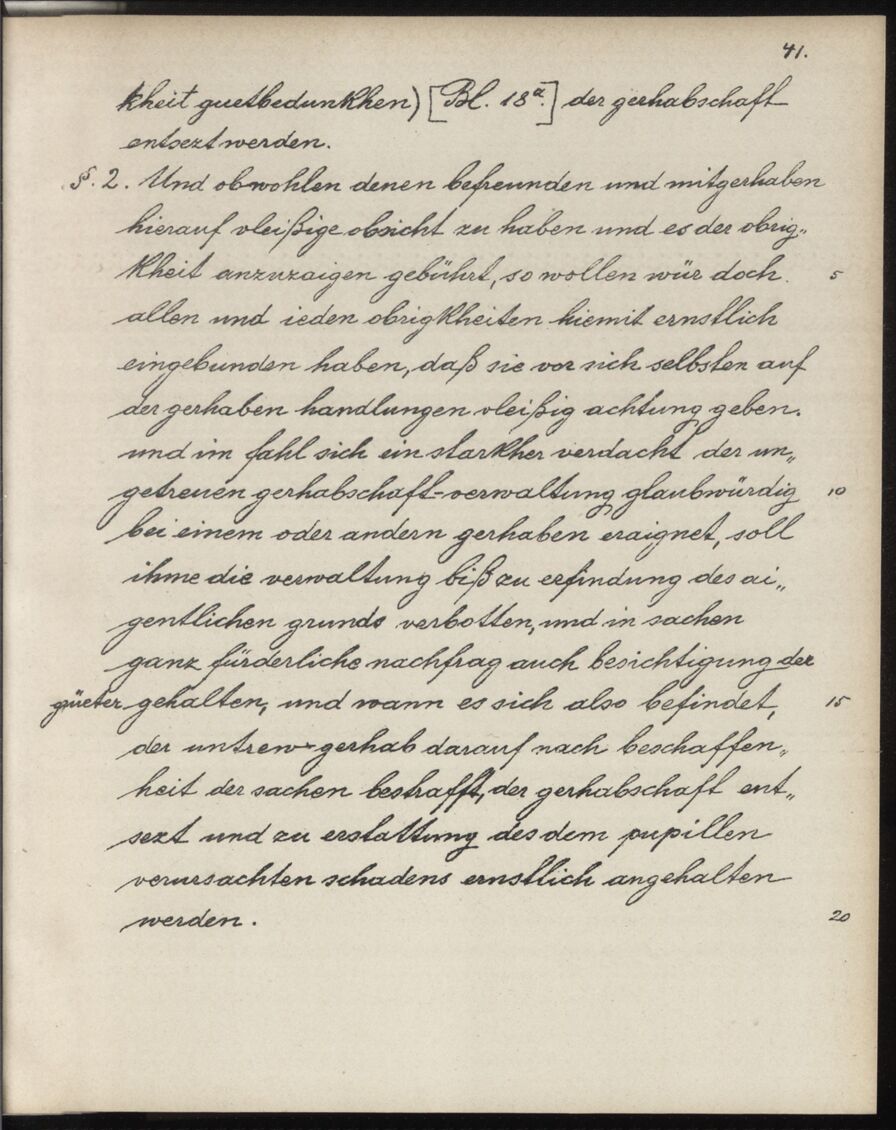 41.
kheit guetbedunkhen) [Bl. 18a.] der gerhabschaft
entsezt werden.
§. 2. Und obwohlen denen befreunden und mitgerhaben
hierauf vleißige obsicht zu haben und es der obrig„
kheit anzuzaigen gebührt, so wollen wür doch 5
allen und ieden obrigkheiten hiemit ernstlich
eingebunden haben, daß sie vor sich selbsten auf
der gerhaben handlungen vleißig achtung geben.
und im fahl sich ein starkher verdacht der un„
getreuen gerhabschaft-verwaltung glaubwürdig 10
bei einem oder andern gerhaben eraignet, soll
ihme die verwaltung biß zu erfindung des ai„
gentlichen grunds verbotten, und in sachen
ganz fürderliche nachfrag auch besichtigung der
güeter gehalten, und wann es sich also befindet, 15
der untrew gerhab darauf nach beschaffen„
heit der sachen bestrafft, der gerhabschaft ent„
sezt und zu erstattung des dem pupillen
verursachten schadens ernstlich angehalten
werden. 20